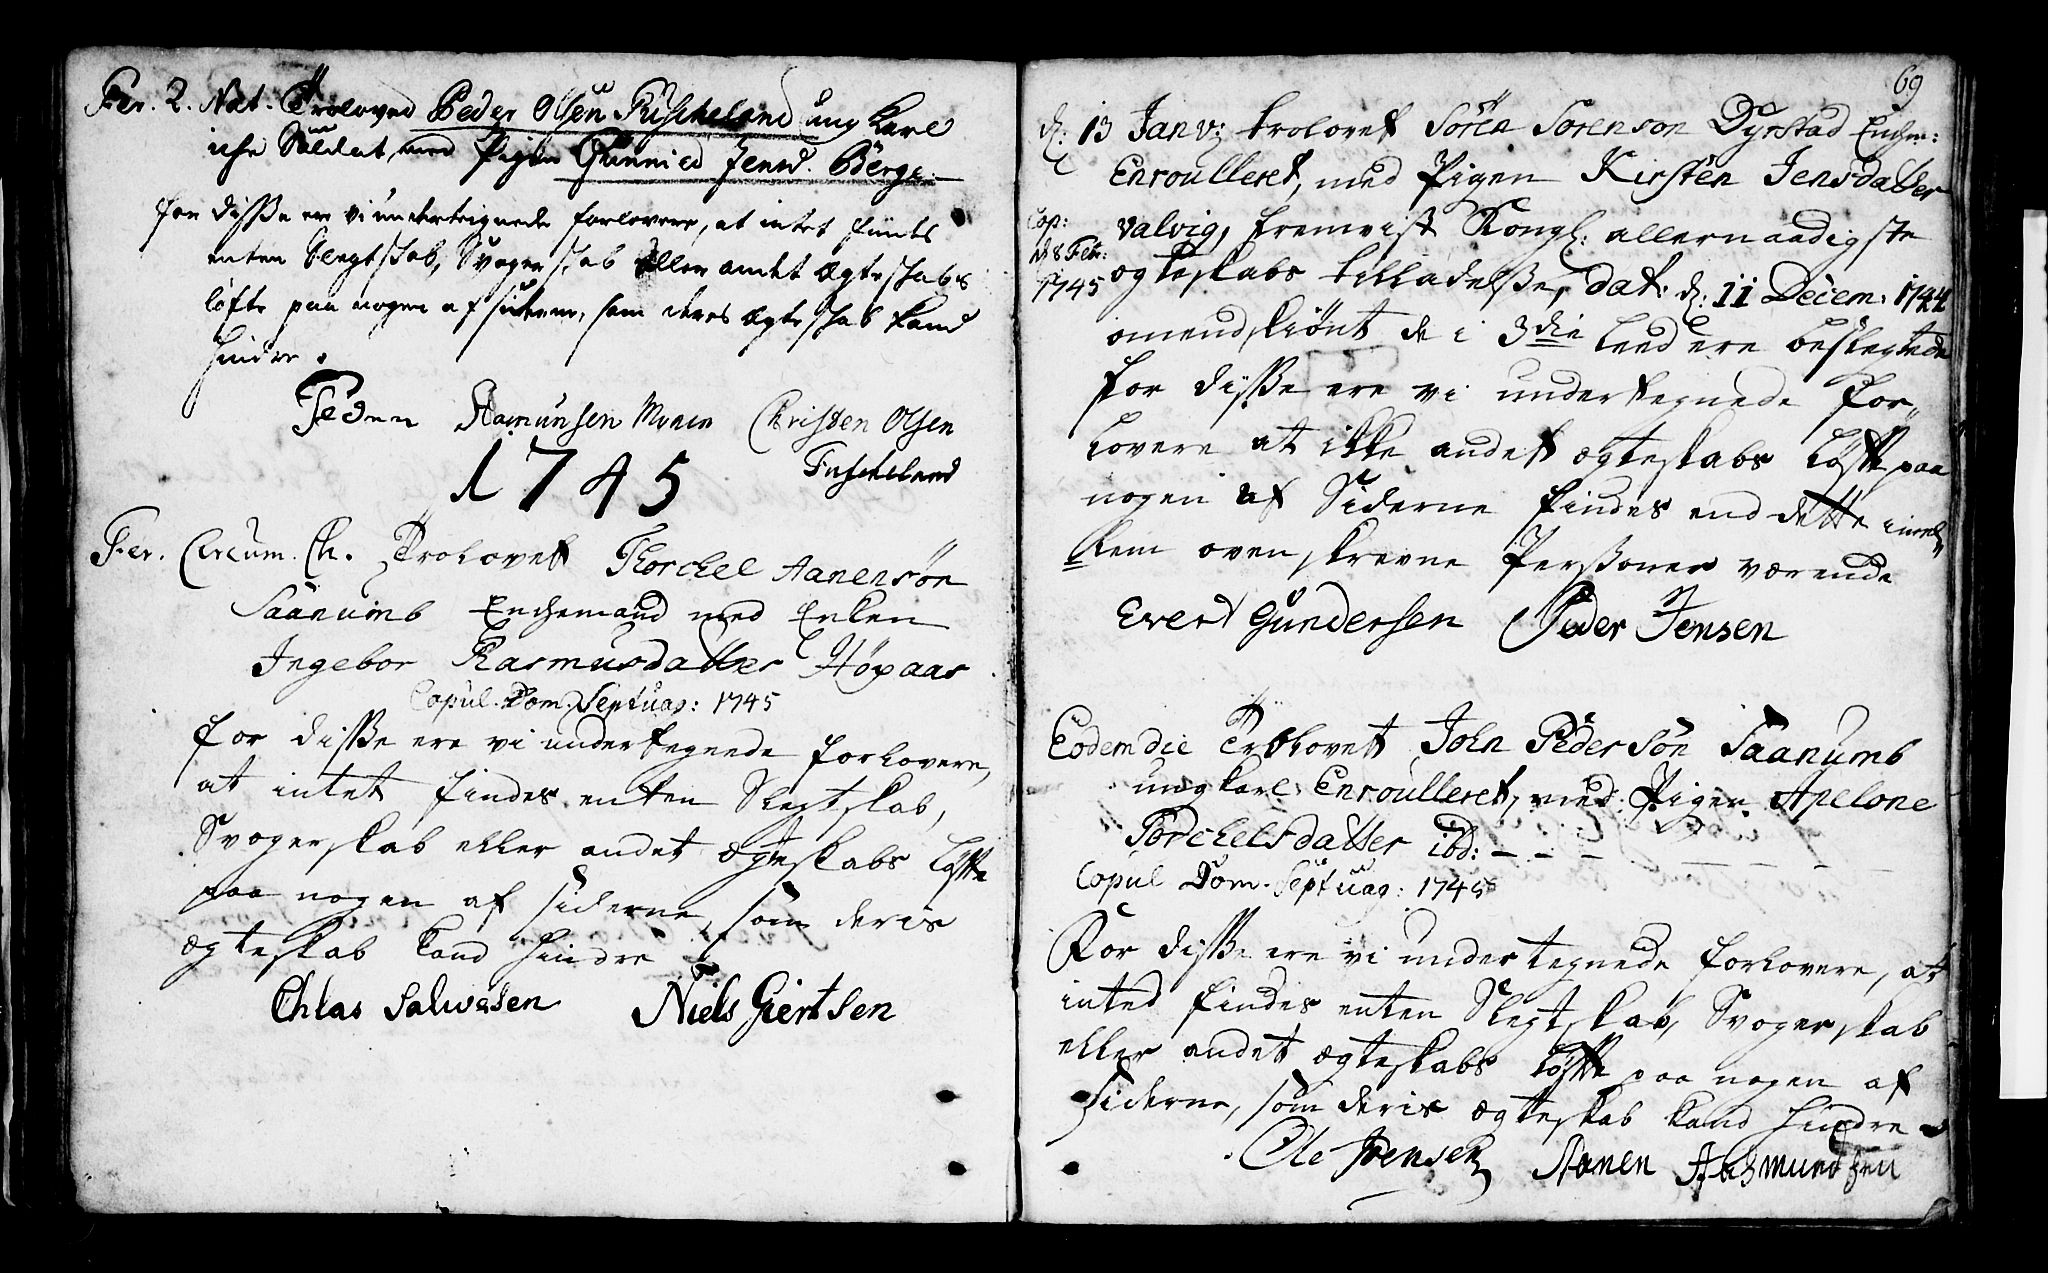 Fer. 2. Nat. Troloved Peder Olsen Fuscheland ung karl
iche Soldat, med Pigen Gunnild Jensd. Berge
for diße ere vi underteignede forlovere, at intet findes
enten Slegtskab, Svogerskab eller andet ægteskabs
løfte paa nogen af siderne, som deres ægteskab kand
hindre.
Peder Aamunsen Christen Olsen
Fuscheland
1745
Fer. Circum. Ch. Trolovet Thorchel Aanensøn
Saanumb Enchemand med Enken
Ingebor Rasmusdatter Høyaas
Copul. Dom. Septuag: 1745
for diße ere vi undertegnede forlovere,
at intet findes enten Slegtskab,
Svogerskab eller andet ægteskabs løfte
paa nogen af siderne, som deris
ægteskab kand hindre
Ohlas Salvesen Niels Giertsen
69
d: 13 Janv: trolovet Sören Sörenson Dyrstad Enchm:
Enroulleret, med Pigen Kirsten Jensdatter
Valvig, fremvist Kongl: allernaadigste
Cop:
d 8 Febr:
1745
ægteskabs tilladelße, dat: d: 11 Decem: 1744
omendskiønt de i 3die leed ere beslegtede
for diße ere vi undertegnede for-
lovere at ikke andet ægteskabs løfte paa
nogen af Siderne findes end dette imel-
lem ovenskrevne Perßoner værende
Evert Gundersen Peder Jensen
Eodem die Trolovett John Pedersøn Saanumb
ung karl Enroulleret, med Pigen Apelone
Torchelsdatter ibd: - - -
Copul Dom. Septuag: 1745
For diße ere vi undertegnede forlovere, at
inted findes enten Slegtskab, Svogerskab
eller andet ægteskabs løfte paa nogen af
Siderne, som deris ægteskab kand hindre
Ole Jensen Aanen Aasmundsen